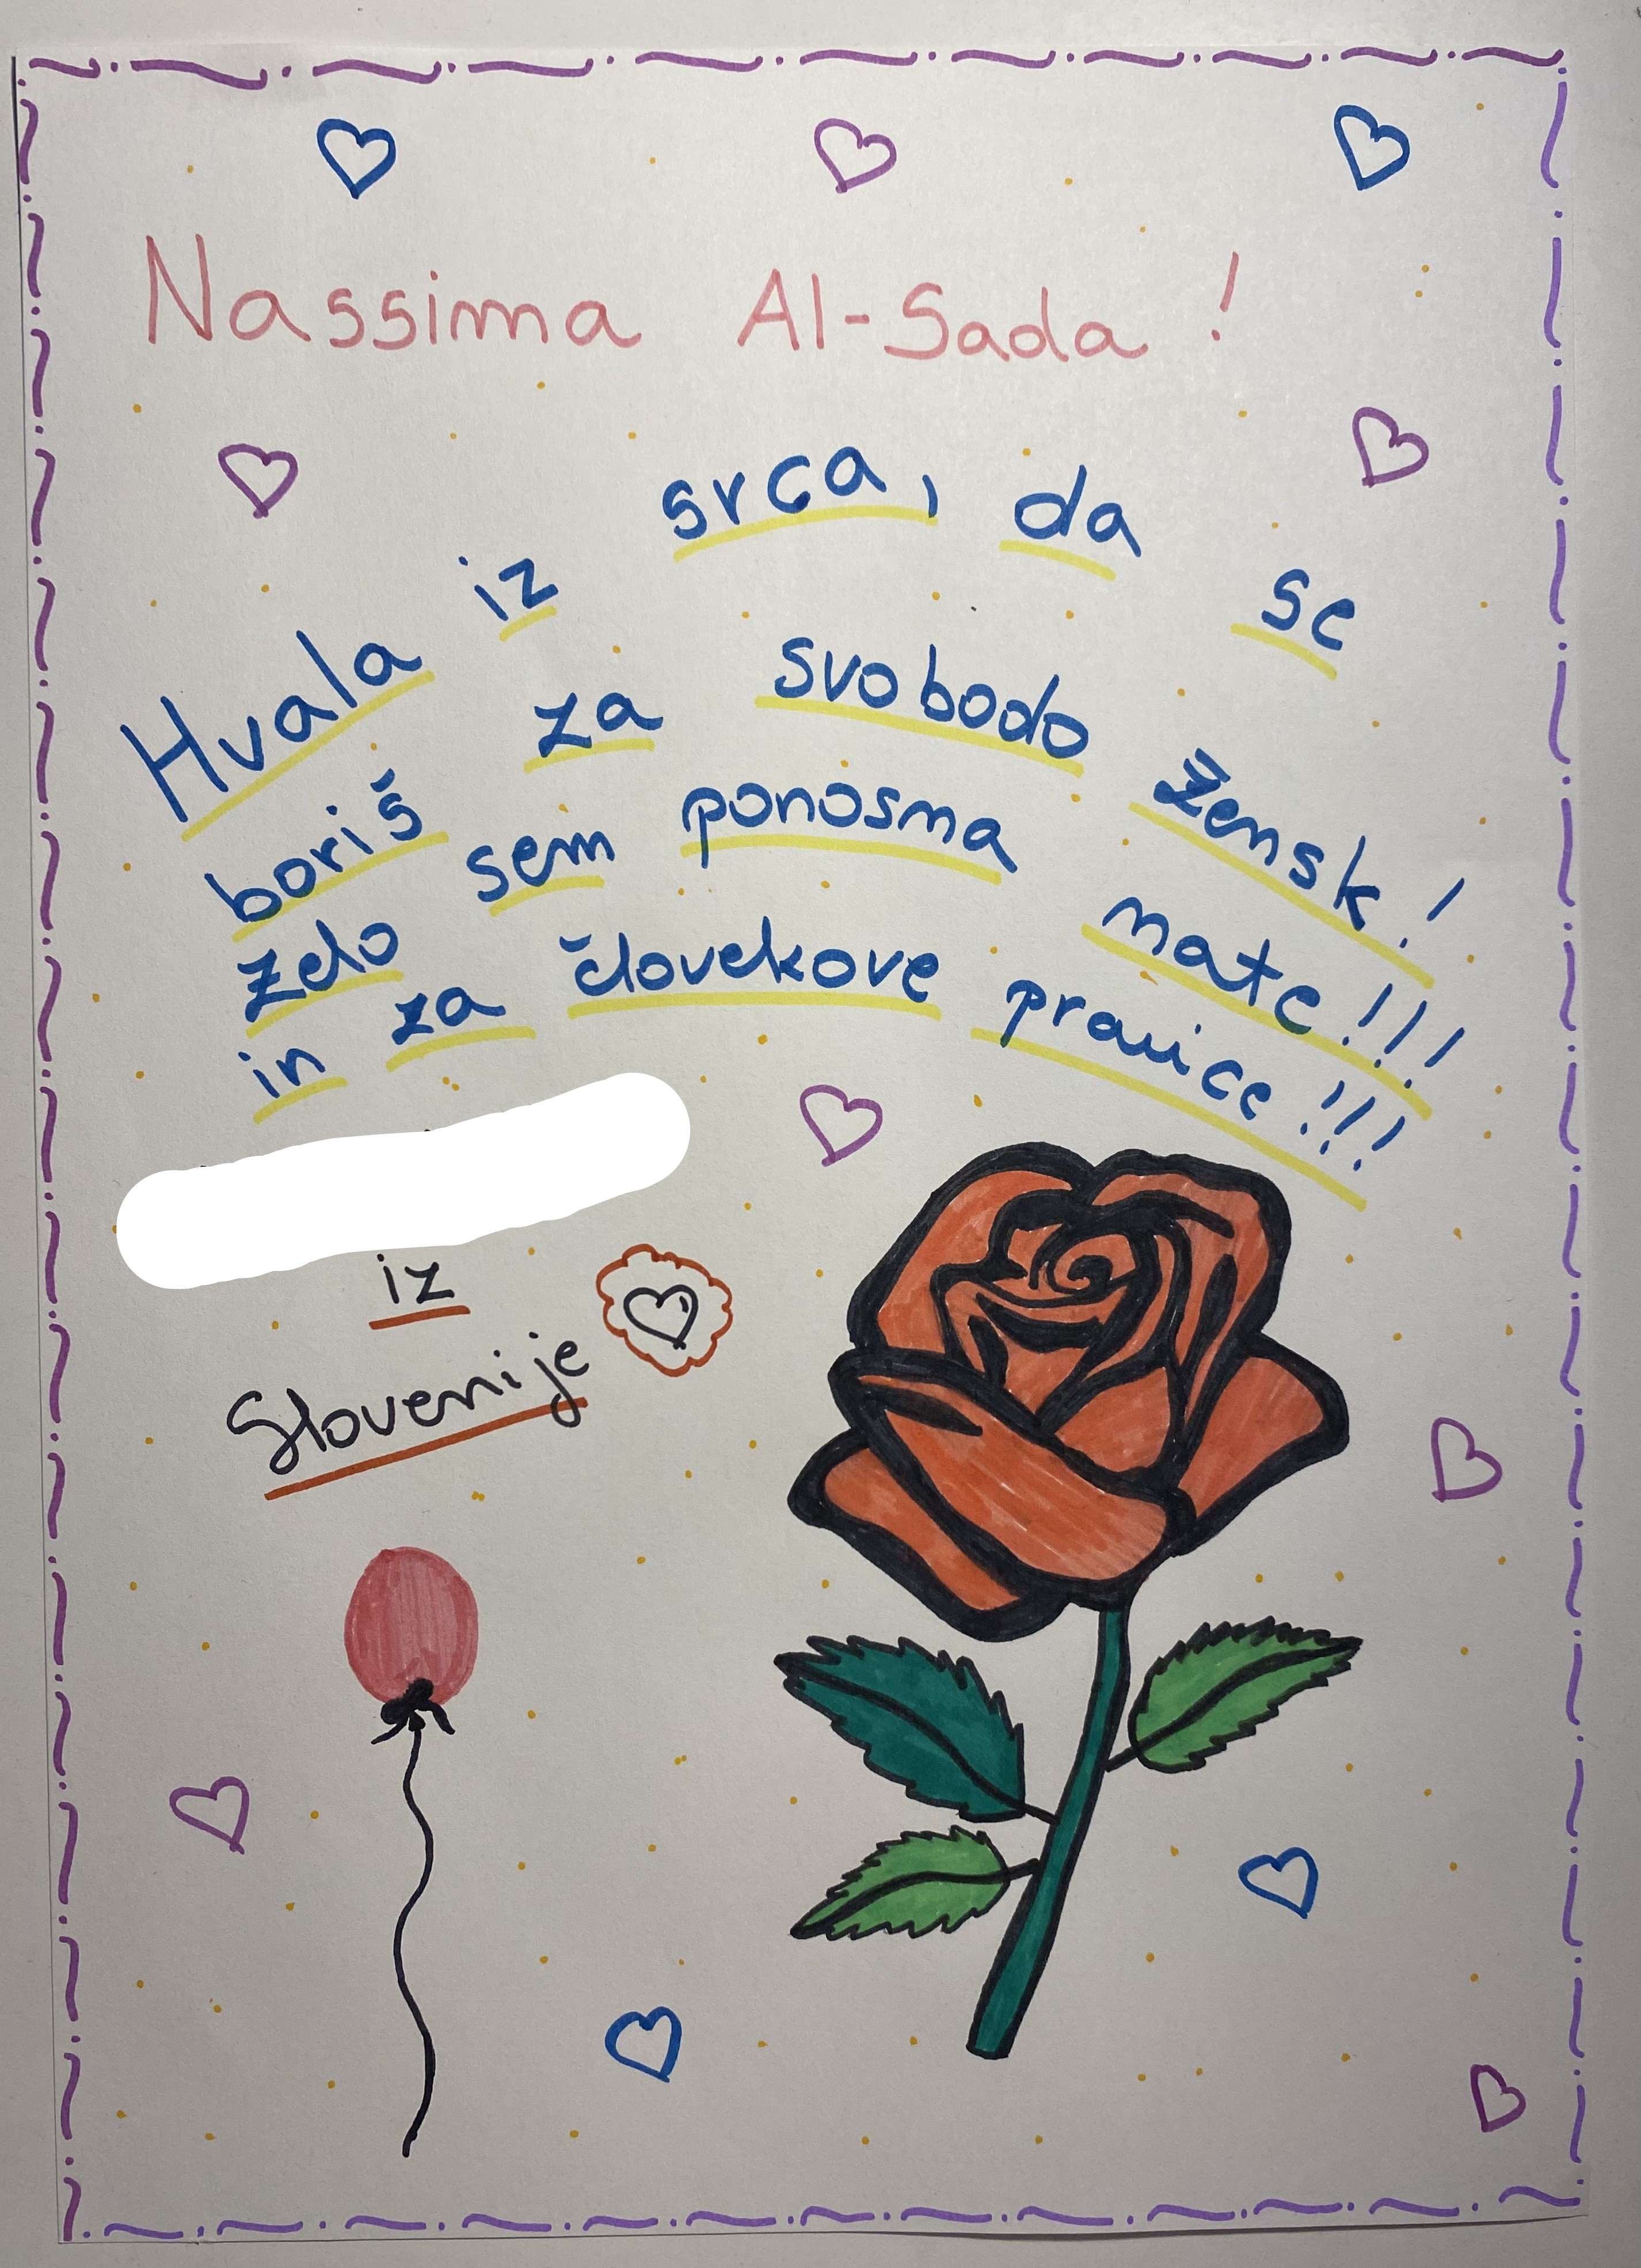 Nassima Al-Sada!
Hvala iz srca, da se
boriš za svobodo žensk!
Zelo sem ponosna nate!!!
in za človekove pravice!!!
iz
Slovenije